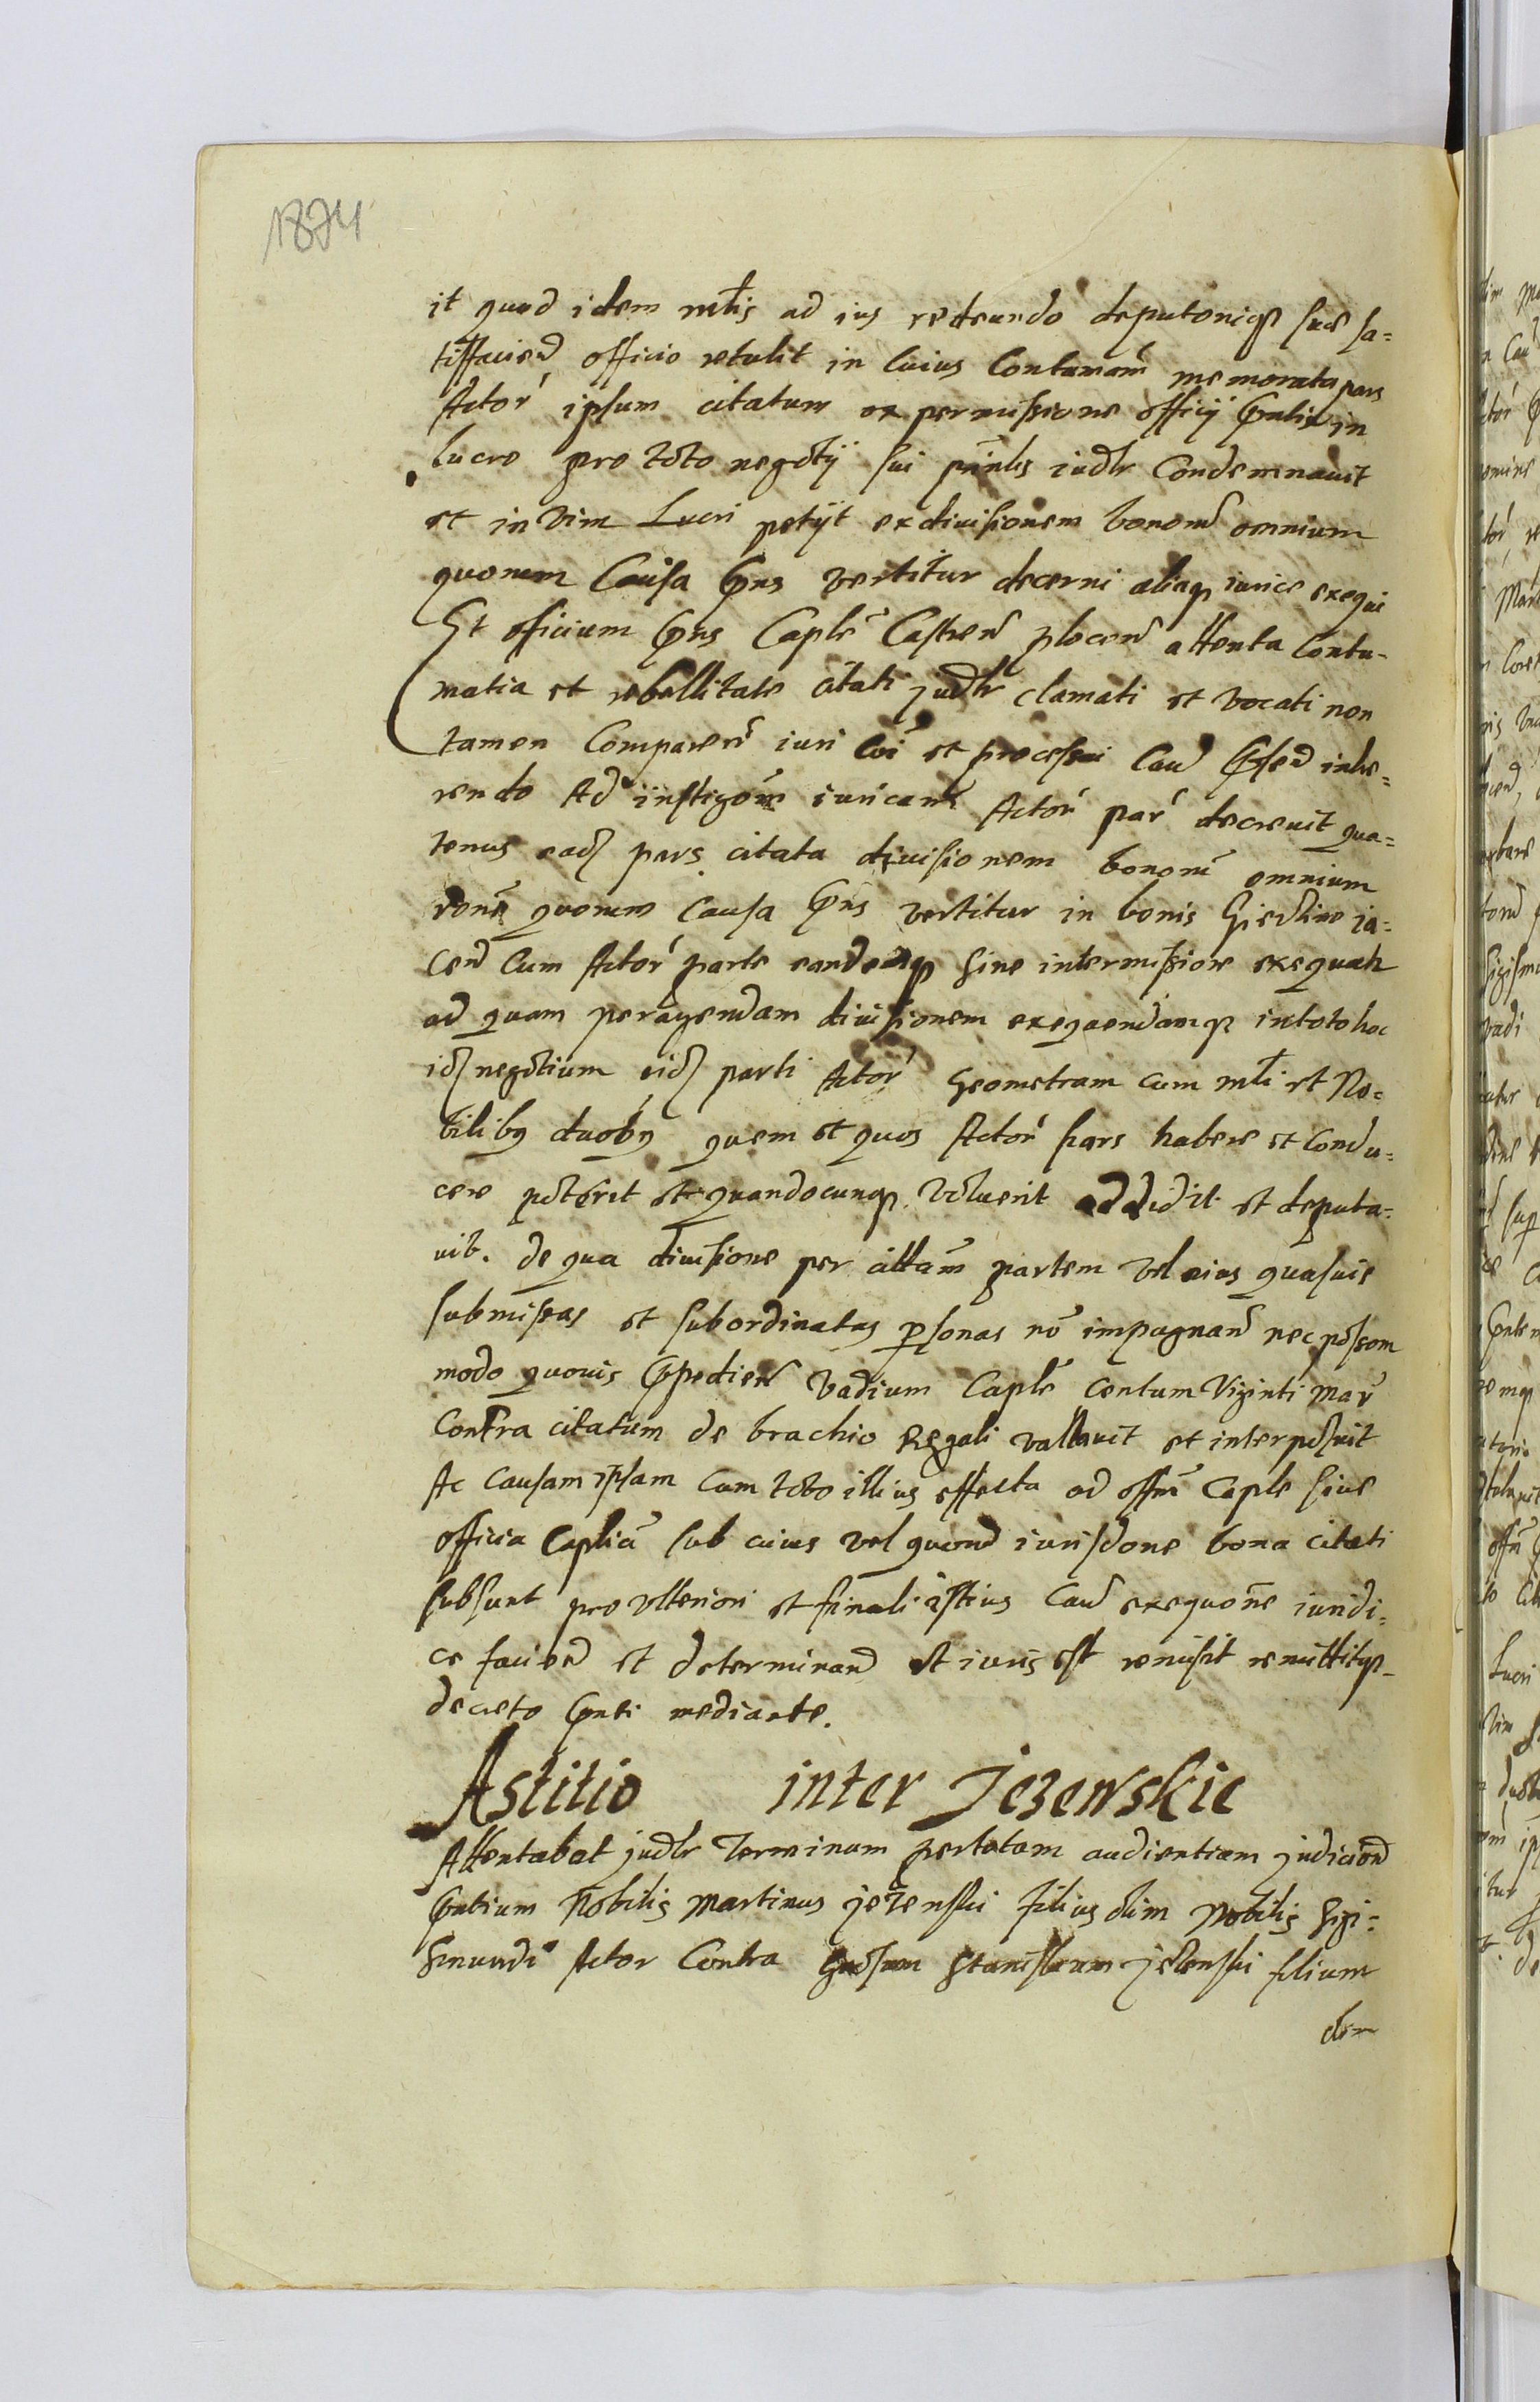 1874
it quod idem mtis ad ius redeundo deputoniqȝ suae sa=
tisfaciend officio retulit in cuius Contumam memorata pars
Actor ipsum citatum ex permissione officij pntis in
lucro pro toto negotij sui pnlis iudtr Condemnavit
et in vim Lucri petijt exdivisionem bonorum omnium
quorum Causa pns vertitur decerni aliaqȝ iurice exequi
Et officium pns Caple Castren plocen attenta Contu-
matia et rebellitate citati judtr clamati et vocati non
tamen Comparen iuri coi et processui Caus pssed inhe=
rendo Ad instigom iuricam Actor par decrevit qua=
tenus ead pars citata divisionem bonorum omnium
rone quorum Causa pns vertitur in bonis ia=
cen Cum Actor parte eandemqȝ sine intermissione exequatr
ad quam peragendam divisionem exequendamqȝ in toto hoc
id negotium eid parti Actor Geometram cum mtli et No=
bilibȝ duobȝ quem et quos Actor pars habere et Condu=
cere poterit et quandocunqȝ voluerit addidit et deputa=
vit. de qua divisione per cittam partem vel eius quasvis
submissas et subordinatas psonas no impugnan nec possom
modo quovis pedien vadium Caple centum Viginti mar
Contra citatum de brachio Regali vallavit et interposuit
Ac causam ipsam cum toto illius effectu ad offm Caple sive
officia Caplia sub cuius vel quorum iurisdone bona citati
subsunt pro ulteriori et finali istius Caus exequone iuridi=
ce facien et determinan ut iuris est remisit remittitqȝ
decreto pnti mediante.
Astitio inter Jezewskie
Attentabat judtr Terminum per totam audientiam judiciorum
pntium Nobilis Martinus jezewski filius olim Nobilis Sigi=
smundi Actor Contra Gnosum Stanislaum jezewski filium
olim